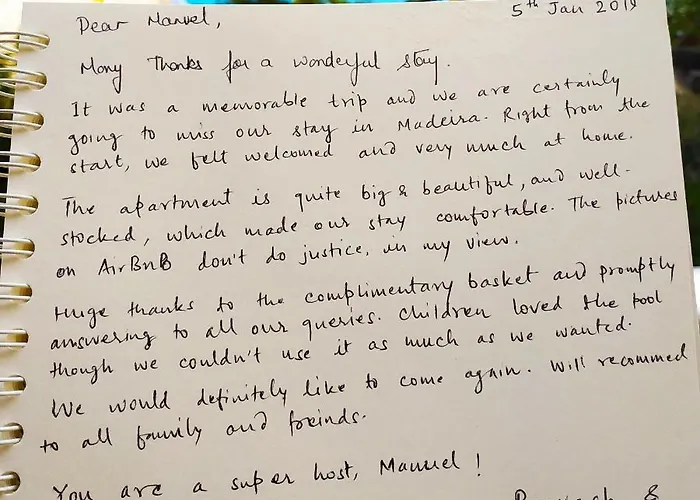 5th Jan 2019
Dear Manuel,
Many Thanks for a wonderful stay.
It was a memorable trip and we are certainly
going to miss our stay in Madeira. Right from the
start, we felt welcomed and very much at home.
The apartment is quite big & beautiful, and well-
stocked, which made our stay comfortable. The pictures
on AirBnB don't do justice, in my view.
Huge thanks to the complimentary basket and promptly
answering to all our queries. Children loved the pool
though we couldn't use it as much as we wanted.
We would definitely like to come again. Will recommed
to all family and freinds.
You are a super host, Manuel !
&